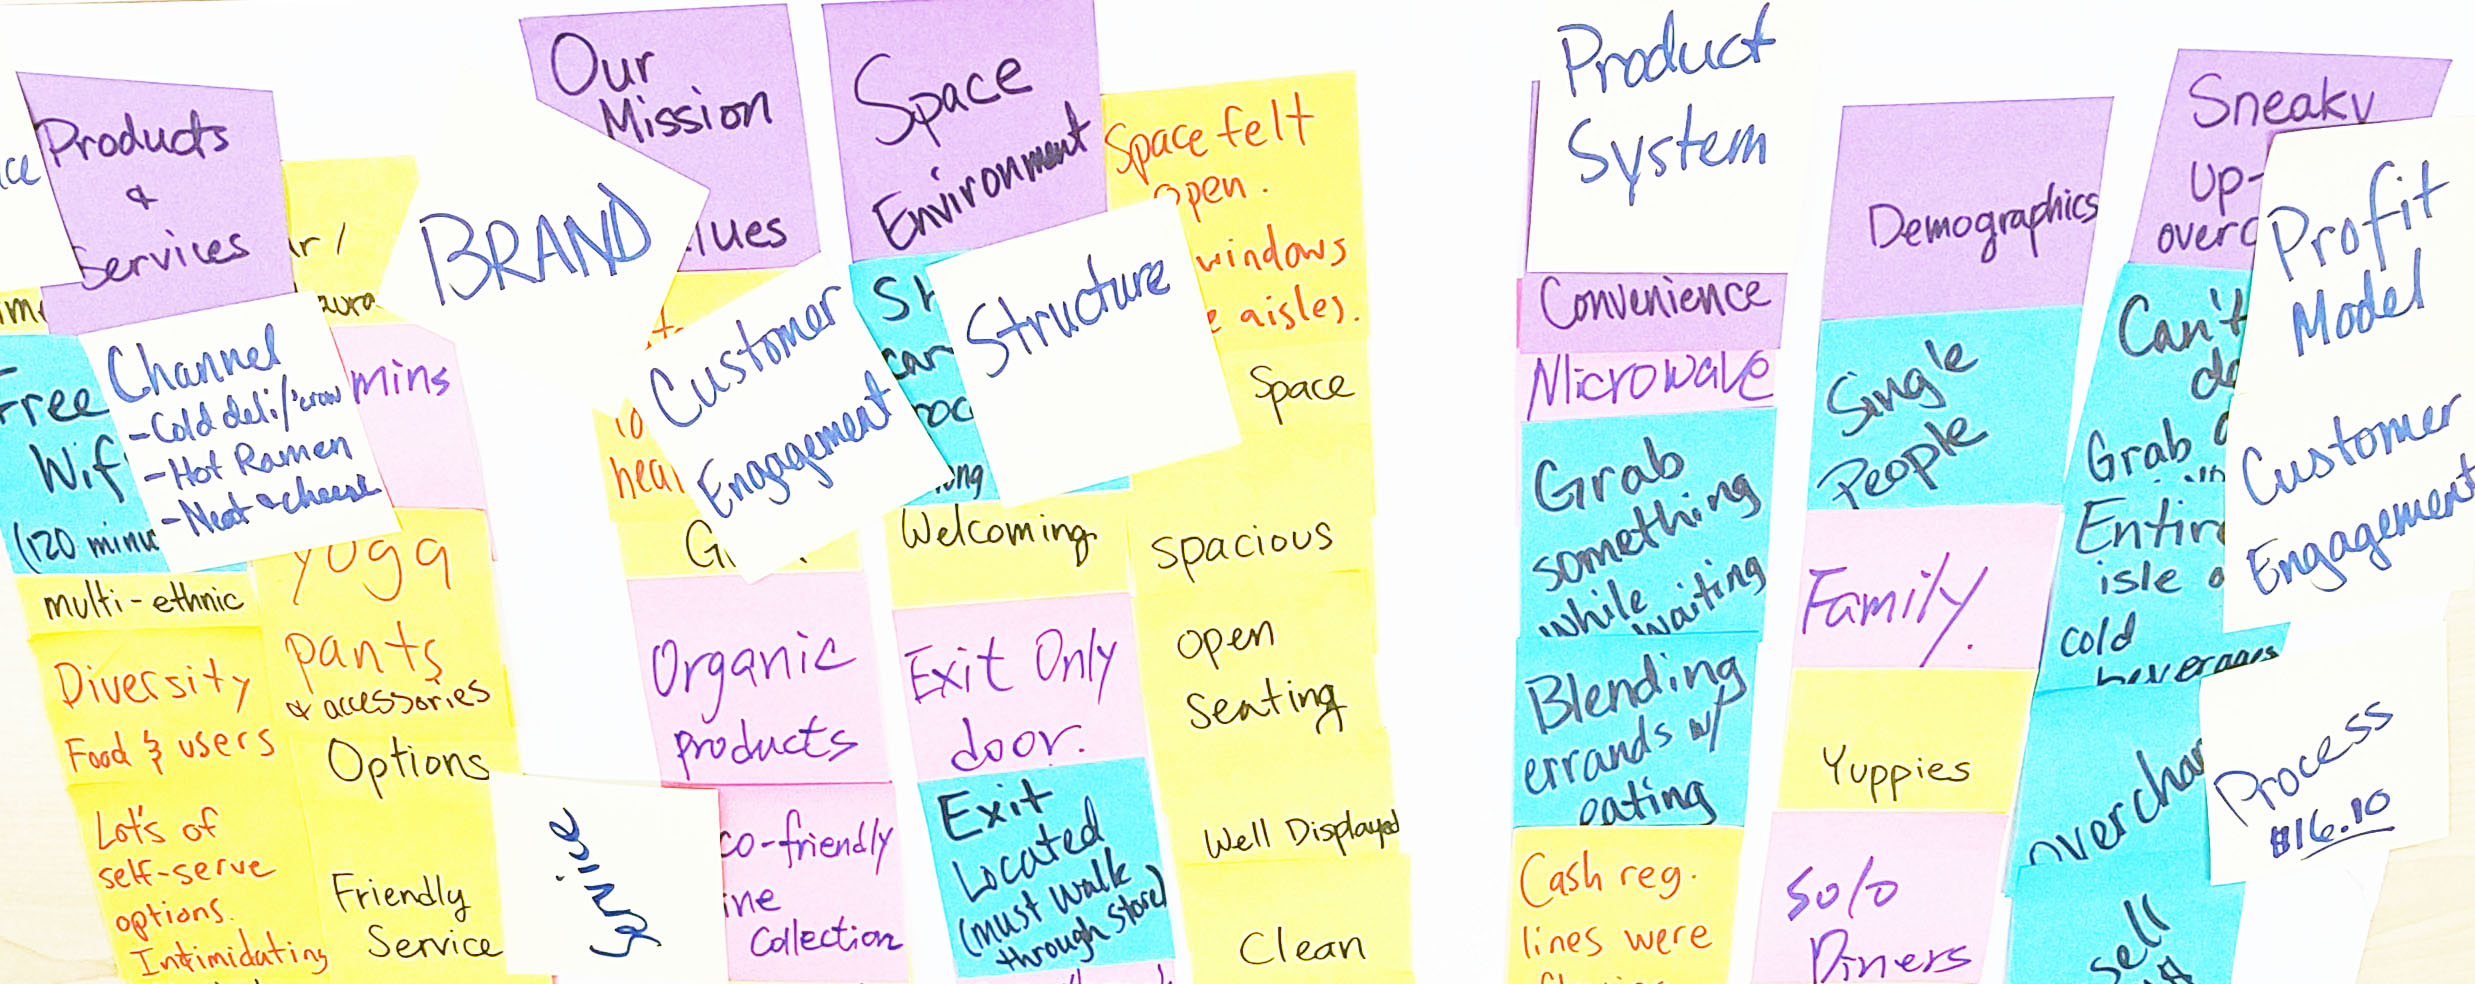 Products
&
Services
Channel
-Cold deli/
-Hot Ramen
Free
(120
multi-ethnic
Diversity
Food & users
Lot's of
self-serve
options.
Intimidating
mins
yoga
pants
& accessories
Options
Friendly
Service
BRAND
Our
Mission
Customer
Engagement
Organic
products
Collection
Service
Space
Environment
Structure
Welcoming
Exit Only
door.
Exit
Located
(must walk
through store)
Space felt
open.
windows
aisles.
Space
spacious
open
seating
Well Displayed
Clean
Product
System
Convenience
Microwave
Grab
something
while waiting
Blending
errands w/
eating
Cash reg.
lines were
Demographics
Single
People
Family.
Yuppies
Solo
Diners
Sneaky
up-
Can't
Grab
isle
cold
beverages
sell
Profit
Model
Customer
Engagement
Process
$16.10